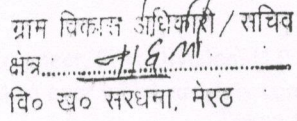 ग्राम विकास अधिकारी / सचिव
क्षेत्र..........................
वि० ख० सरधना, मेरठ